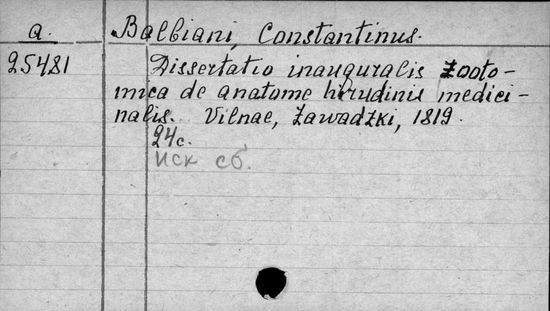 a. Balbiani, Constantinus.
25481 Dissertatio inauguralis Zooto-
mica de anatome hirudinis medici-
nalis. Vilnae, Zawadzki, 1819.
24c.
иск сб.